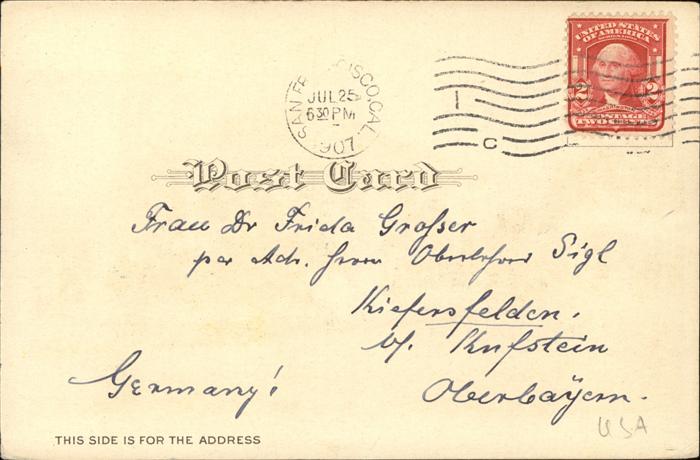 SAN FRANCISCO, CAL.
JUL 25
6 30 PM
1907
1
C
UNITED STATES
OF AMERICA
2 2
POSTAGE
TWO CENTS
Post Card
Frau Dr Frida Grosser
per Adr. Herrn Oberlehrer Sigl
Kiefersfelden.
b/ Kufstein
Germany!
Oberbayern.
USA
THIS SIDE IS FOR THE ADDRESS